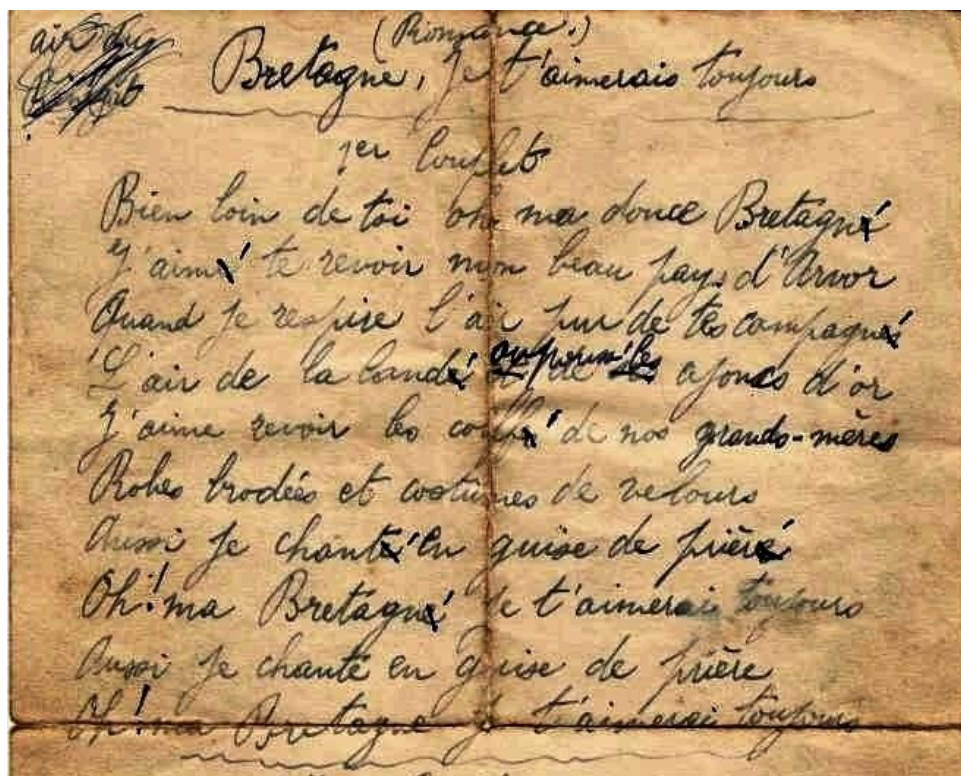 air du
(Romance.)
Bretagne, je t'aimerais toujours
1er Couplet
Bien loin de toi oh ma douce Bretagn'
J'aim' te revoir mon beau pays d'Arvor
Quand je respire l'air pur de tes campagn'
L'air de la land' ou parmi les ajoncs d'or
J'aime revoir les coiff' de nos grands-mères
Robes brodées et costumes de velours
Aussi je chant' en guise de prièr'
Oh! ma Bretagn' je t'aimerai toujours
Aussi je chante en guise de prière
Oh! ma Bretagne je t'aimerai toujours